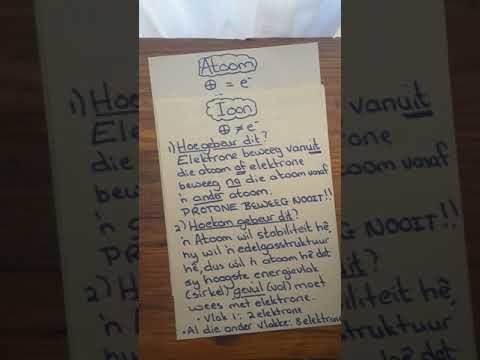 Atoom
⊕ = e⁻
Ioon
⊕ ≠ e⁻
1) Hoe gebeur dit?
Elektrone beweeg vanuit
die atoom of elektrone
beweeg na die atoom vanaf
'n ander atoom.
PROTONE BEWEEG NOOIT!!
2) Hoekom gebeur dit?
'n Atoom wil stabiliteit hê,
hy wil 'n edelgasstruktuur
hê, dus wil 'n atoom hê dat
sy hoogste energievlak
(sirkel) gevul (vol) moet
wees met elektrone.
- Vlak 1: 2 elektrone
- Al die ander vlakke: 8 elektrone